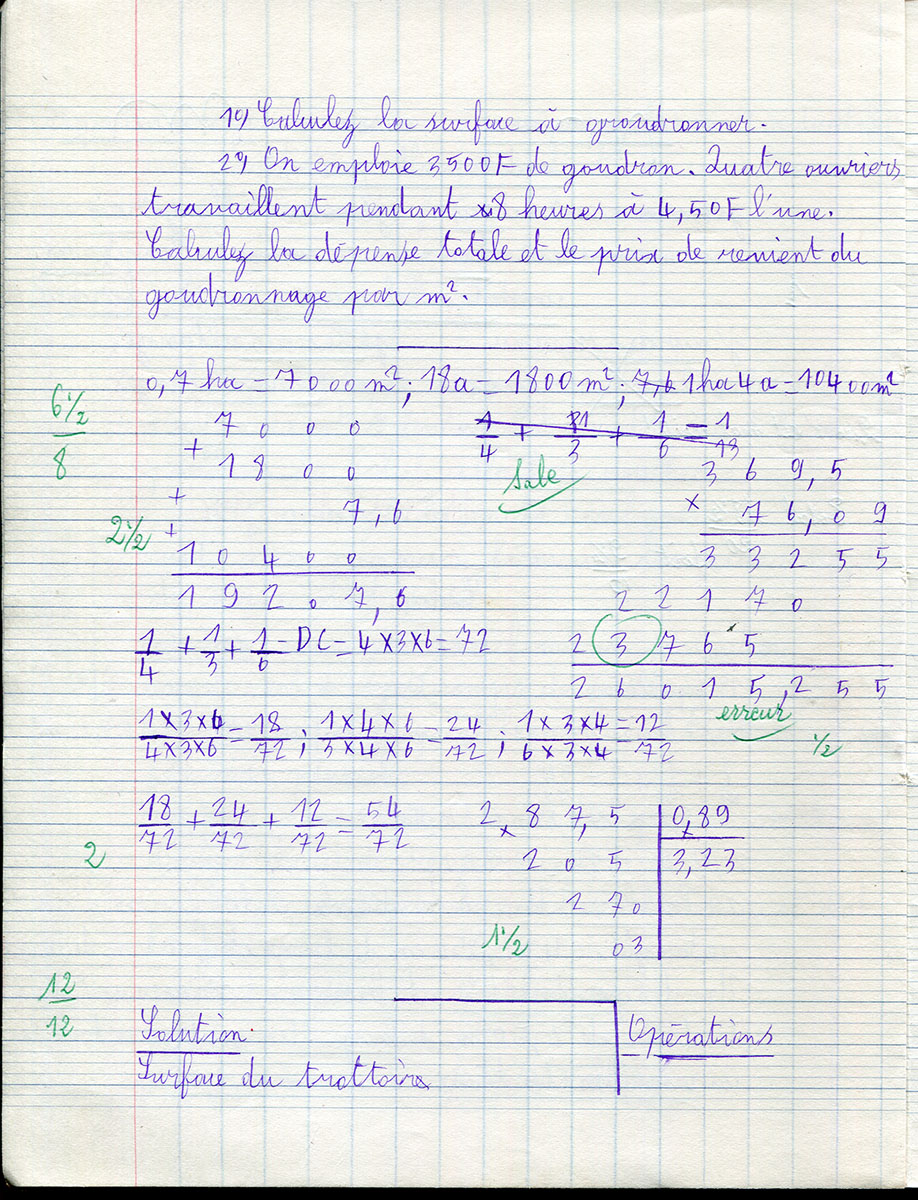 1°) Calculez la surface à groudronner.
2°) On emploie 3500F de goudron. Quatre ouvriers
travaillent pendant 8 heures à 4,50F l'une.
Calculez la dépense totale et le prix de revient du
goudronnage par m².
0,7 ha = 7000 m² ; 18a = 1800 m² ; 7,6 1ha 4a = 10400 m²
6 1/2
8
7000
+ 1800
+ 7,6
2 1/2
+ 10400
19207,6
1/4 + 11/3 + 1/6 = 1/13
Sale
369,5
× 76,09
33255
22170
23765
26015,255
erreur
1/2
1/4 + 1/3 + 1/6 = DC = 4×3×6 = 72
1×3×6/4×3×6 = 18/72 ; 1×4×6/3×4×6 = 24/72 ; 1×3×4/6×3×4 = 12/72
18/72 + 24/72 + 12/72 = 54/72
2
287,5 | 0,89
205 | 3,23
270
03
1 1/2
12
12
Solution
Opérations
Surface du trottoir